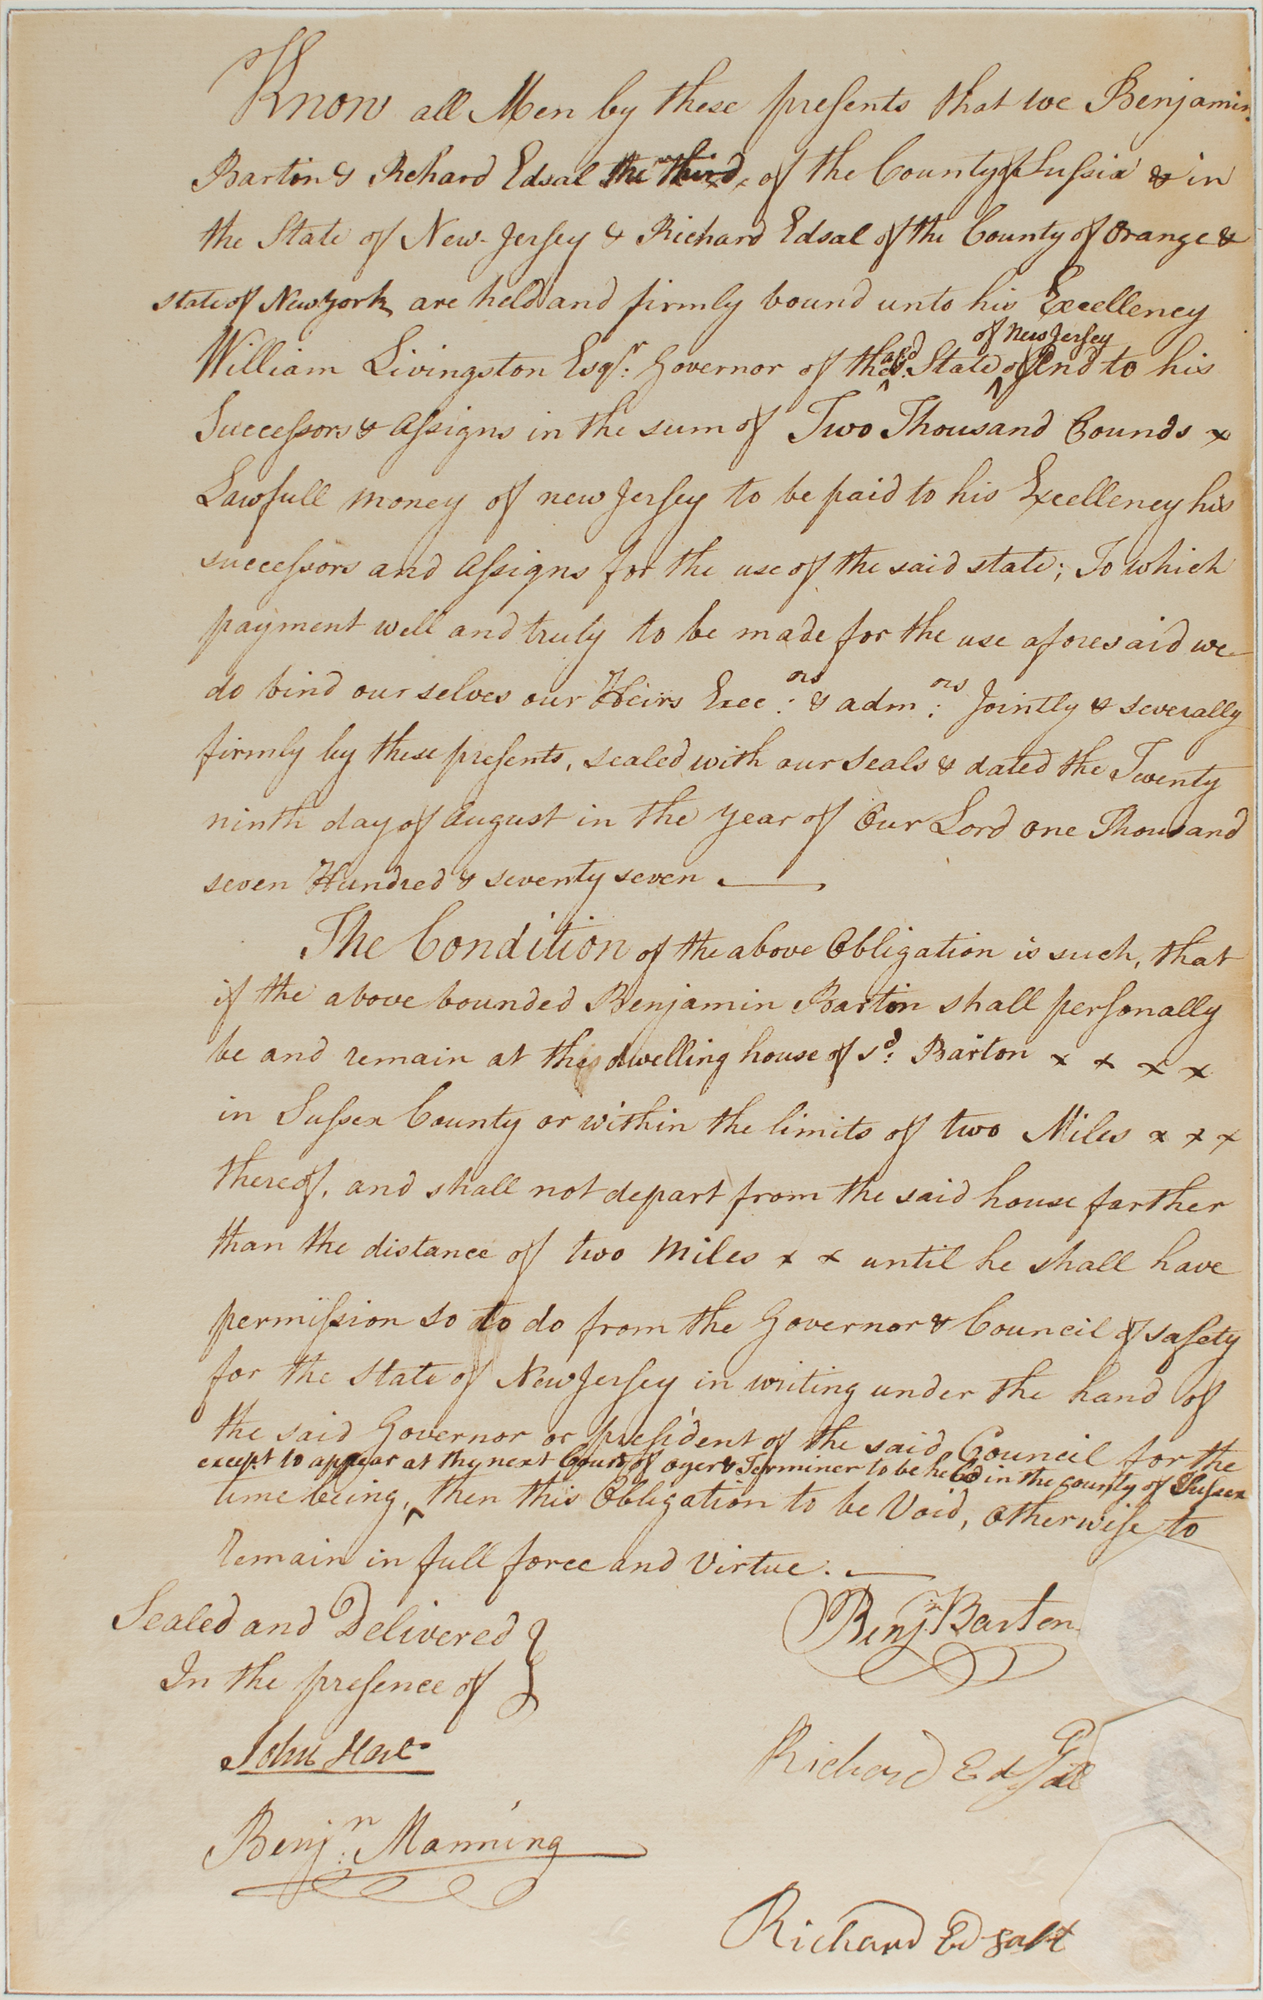 Know all Men by these presents that we Benjamin
Barton & Richard Edsal the third of the County of Sussix & in
the State of New-Jersey & Richard Edsal of the County of Orange &
state of New york are held and firmly bound unto his Excellency
of New Jersey
William Livingston Esqr. Governor of the sd. State of And to his
Successors & Assigns in the sum of Two Thousand Pounds x
Lawfull money of new Jersey to be paid to his Excellency his
successors and Assigns for the use of the said state; To which
payment well and truly to be made for the use aforesaid we
do bind our selves our Heirs Exec:ors & adm:ors Jointly & severally
firmly by these presents, sealed with our seals & dated the Twenty
ninth day of August in the year of Our Lord one Thousand
seven Hundred & seventy seven.
The Condition of the above Obligation is such, that
if the above bounded Benjamin Barton shall personally
be and remain at the dwelling house of sd: Barton x x x x
in Sussex County or within the limits of two Miles x x x
thereof, and shall not depart from the said house farther
than the distance of two Miles x x until he shall have
permission so to do from the Governor & Council of safety
for the State of New Jersey in writing under the hand of
the said Governor or president of the said Council for the
except to appear at thy next Court of oyer & Terminer to be held in the county of Sussex
time being, then this Obligation to be Void, otherwise to
Remain in full force and Virtue.
Sealed and Delivered
In the presence of
Benjn Barton
John Hart
Richard Edsall
Benjn: Manning
Richard Edsall